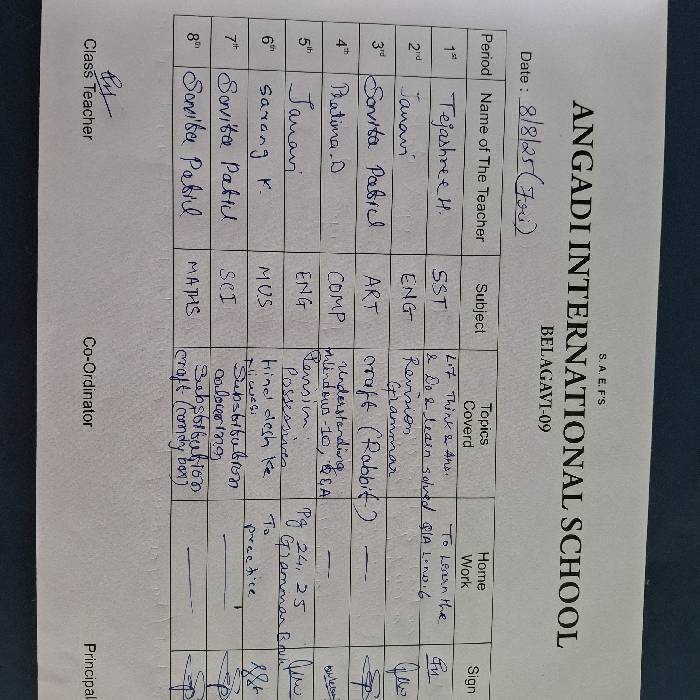 S.A.E.F'S
ANGADI INTERNATIONAL SCHOOL
BELAGAVI-09
Date : 8/8/25 (Fri)
Period Name of The Teacher Subject Topics Coverd Home Work Sign
1st Tejashree H. SST L-7 Think & Ans. To Learn the
& Do & Learn solved Q/A L.no.6
2nd Janavi ENG Revision
Grammar
3rd Sonita Patil ART craft (Rabbit) —
4th Fatima.D COMP Understanding
Windows-10, Q&A —
5th Janavi ENG Possessives Pg 24, 25
Grammar Book
6th Sarang K. MUS Hind desh ke To
niwasi practice
7th Sonita Patil SCI Substitution
colouring —
8th Sonita Patil MATHS Substitution
craft (comdy box) —
Class Teacher Co-Ordinator Principal